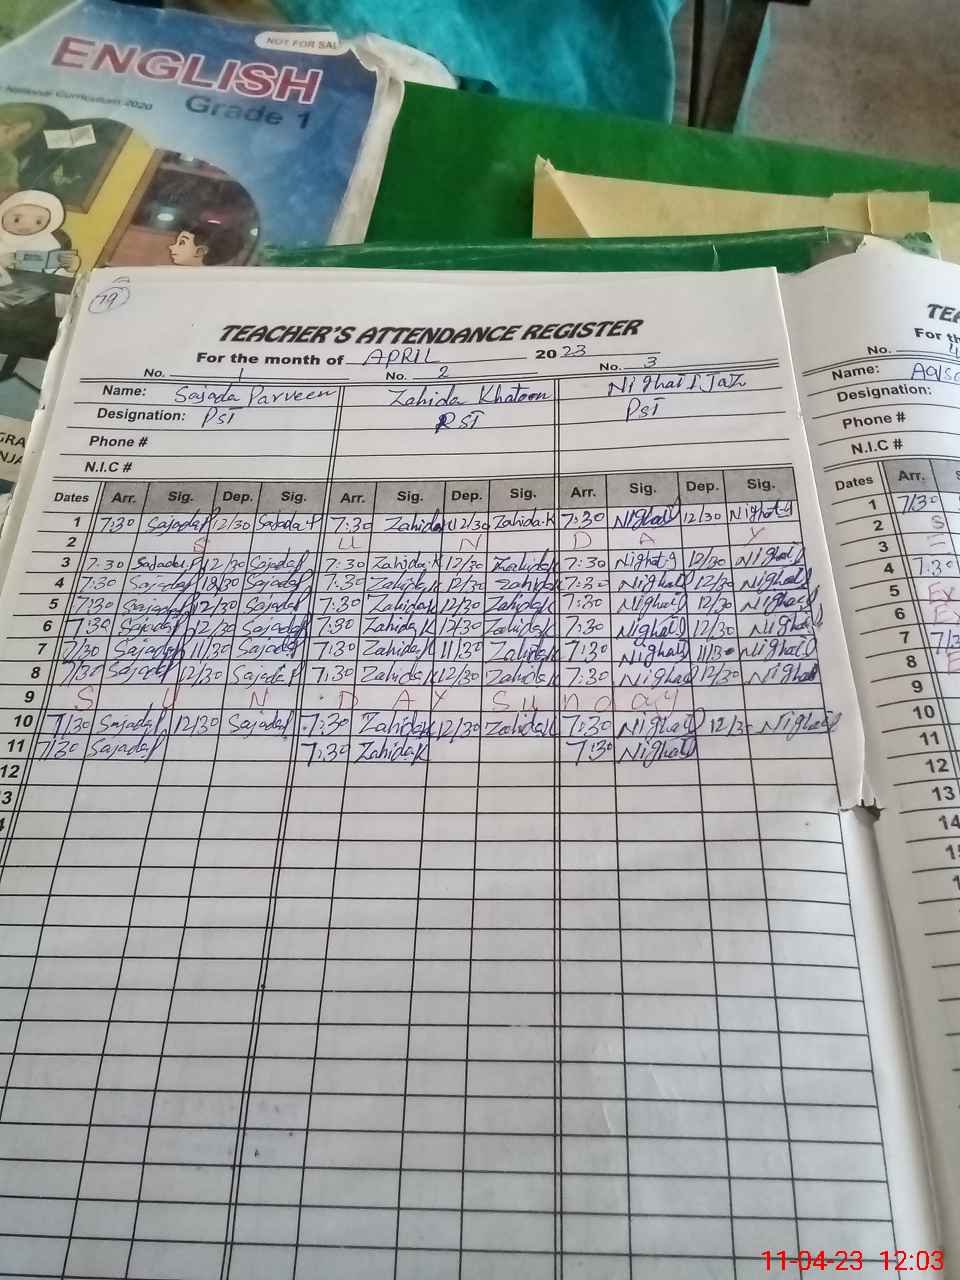 NOT FOR SAL
ENGLISH
National Curriculum 2020
Grade 1
79
TEACHER'S ATTENDANCE REGISTER
For the month of APRIL 2023
No. 1 No. 2 No. 3
Name: Sajada Parveen Zahida Khatoon Nighat IJaZ
Designation: PST PST PST
Phone #
N.I.C #
Dates Arr. Sig. Dep. Sig. Arr. Sig. Dep. Sig. Arr. Sig. Dep. Sig.
1 7:30 Sajada P 12/30 Sajada.P 7:30 Zahida 12/30 Zahida.K 7:30 Nighat 12/30 Nighat.I
2 S U N D A Y
3 7:30 Sajada.P 12/30 Sajada P 7:30 Zahida.K 12/30 Zahida K 7:30 Nighat.I 12/30 Nighat I
4 7:30 Sajada P 12/30 Sajada P 7:30 Zahida K 12/30 Zahida K 7:30 Nighat I 12/30 Nighat I
5 7:30 Sajada P 12/30 Sajada P 7:30 Zahida K 12/30 Zahida K 7:30 Nighat I 12/30 Nighat I
6 7:30 Sajada P 12/30 Sajada P 7:30 Zahida K 12/30 Zahida K 7:30 Nighat I 12/30 Nighat I
7 7/30 Sajada P 11/30 Sajada P 7:30 Zahida K 11/30 Zahida K 7:30 Nighat I 11/30 Nighat I
8 7/30 Sajada P 12/30 Sajada P 7:30 Zahida K 12/30 Zahida K 7:30 Nighat I 12/30 Nighat I
9 S U N D A Y Sunday
10 7/30 Sajada P 12/30 Sajada P 7:30 Zahida K 12/30 Zahida K 7:30 Nighat I 12/30 Nighat I
11 7:30 Sajada P 7:30 Zahida K 7:30 Nighat I
12
3
4
TEA
For th
No. 4
Name:
Designation:
Phone #
N.I.C #
Dates Arr. S
1 7/30
2 S
3
4 7:30
5 Ex
6 Ex
7 7/3
8 E
9
10
11
12
13
14
11-04-23 12:03